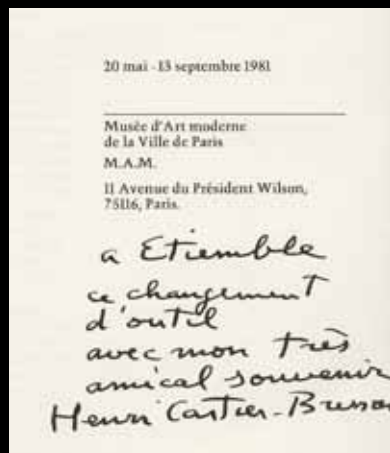 20 mai - 13 septembre 1981
Musée d'Art moderne
de la Ville de Paris
M.A.M.
11 Avenue du Président Wilson,
75116, Paris.
a Etiemble
ce changement
d'outil
avec mon très
amical souvenir
Henri Cartier-Bresson